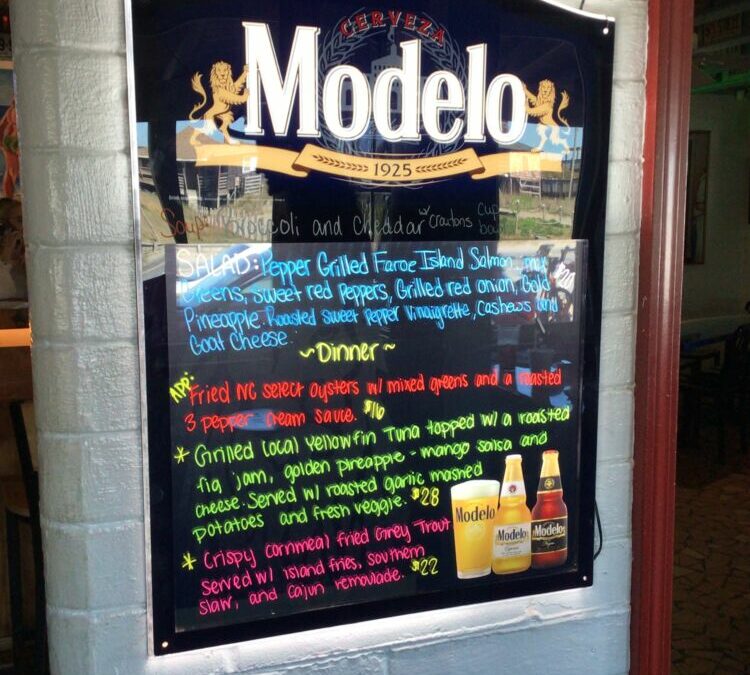 CERVEZA
Modelo
1925
Soup: Broccoli and Cheddar w/ Croutons Cup
SALAD: Pepper Grilled Faroe Island Salmon,
Greens, sweet red peppers, Grilled red onion, Gold
Pineapple. Roasted Sweet Pepper Vinaigrette, Cashews and
Goat Cheese.
~Dinner~
APP:
Fried NC select oysters w/ mixed greens and a roasted
3 pepper cream sauce. $16
* Grilled local Yellowfin Tuna topped w/ a roasted
fig jam, golden pineapple - mango salsa and
cheese. Served w/ roasted garlic mashed
potatoes and fresh veggie. $28
* Crispy cornmeal fried Grey Trout
served w/ island fries, southern
slaw, and cajun remoulade. $22
Modelo
Modelo
Modelo